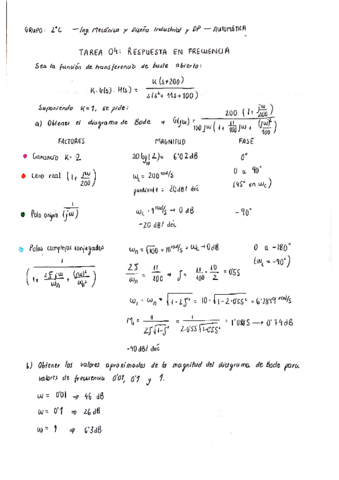 GRUPO: 2ºC - Ing Mecánica y Diseño Industrial y DP - AUTOMÁTICA
TAREA 04: RESPUESTA EN FRECUENCIA
Sea la función de transferencia de bucle abierto:
K·G(s)·H(s) = K(s+200) / s(s²+11s+100)
Suponiendo K=1, se pide:
a) Obtener el diagrama de Bode → G(jω) = 200 (1+ jω/200) / 100 jω (1+ 11/100 jω + (jω)²/100)
FACTORES MAGNITUD FASE
Ganancia K=2 20log(2)= 6'02 dB 0°
Cero real (1+ jω/200) ωc = 200 rad/s 0 a 90°
pendiente: 20dB/déc (45° en ωc)
Polo origen 1/(jω) ωc = 1 rad/s → 0 dB -90°
-20 dB/déc
Polos complejos conjugados ωn = √100 = 10 rad/s → 0 dB 0 a -180°
1 / (1+ 2ζjω/ωn + (jω)²/ωn²) 2ζ/ωn = 11/100 → ζ = 11/100 · 10/2 = 0'55 (ωc → -90°)
ωr = ωn · √1-2ζ² = 10·√1-2·0'55² = 6'2849 rad/s
Mr = 1 / 2ζ√1-ζ² = 1 / 2·0'55√1-0'55² = 1'0885 → 0'74 dB
-40 dB/déc
b) Obtener los valores aproximados de la magnitud del diagrama de Bode para
valores de frecuencia 0'01, 0'1 y 1.
ω = 0'01 ⇒ 46 dB
ω = 0'1 ⇒ 26 dB
ω = 1 ⇒ 6'3dB